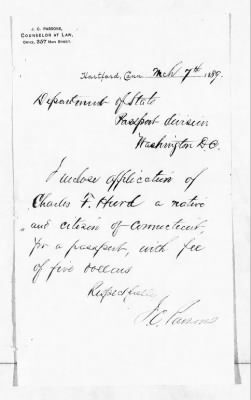 J. C. PARSONS,
COUNSELOR AT LAW,
OFFICE, 337 MAIN STREET.
Hartford, Conn Mch 7th 1889.
Department of State
Passport division
Washington D.C.
I inclose application of
Charles F. Hurd a native
and citizen of Connecticut,
for a passport, with fee
of five dollars
Respectfully
J. C. Parsons